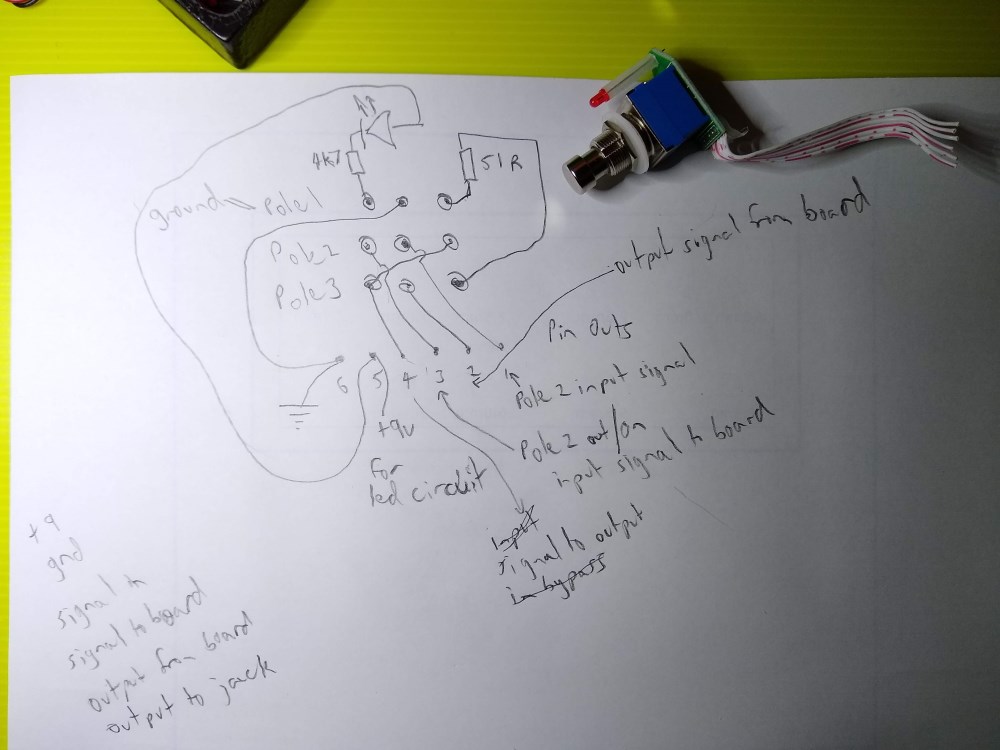 4k7
51R
ground
Pole 1
Pole 2
Pole 3
output signal from board
Pin Outs
6 5 4 3 2 1
Pole 2 input signal
+9v
for
led circuit
Pole 2 out/on
input signal to board
input
signal to output
in bypass
+9
gnd
signal in
signal to board
output from board
output to jack